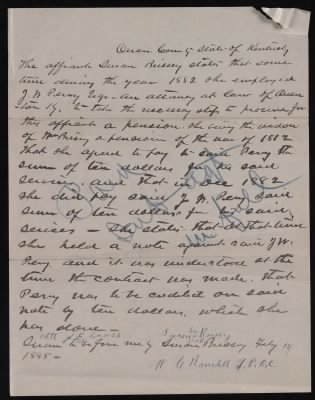 Owen County State of Kentucky
The affiant Susan Bussey states that some
time during the year 1882 she employed
J. W. Perry Esqr. an attorney at law of Owen
ton Ky. to take the necessary steps to procure for
this affiant a pension. She being the widow
of Wm Bussey a pensioner of the war of 1812
That she agreed to pay to said Perry the
sum of ten dollars for his said
services and that in Dec 1882
she did pay said J. W. Perry said
sum of ten dollars for his said
services - She states that at that time
she held a note against said J W.
Perry and it was understood at the
time the contract was made. that
Perry was to be credited on said
note by ten dollars, which she
has done -
Susan Bussey
Sworn to before me by Susan Bussey July 14
1885 -
W C J. P. O. C